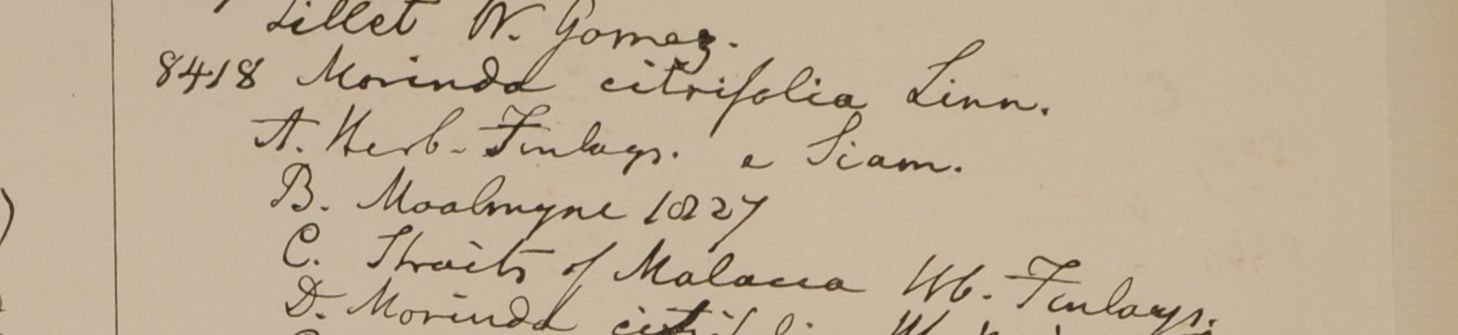 Sillet W. Gomez.
8418 Morinda citrifolia Linn.
A. Herb. Finlays. e Siam.
B. Moalmyne 1827
C. Straits of Malacca Hb. Finlays.
D. Morinda citrifolia